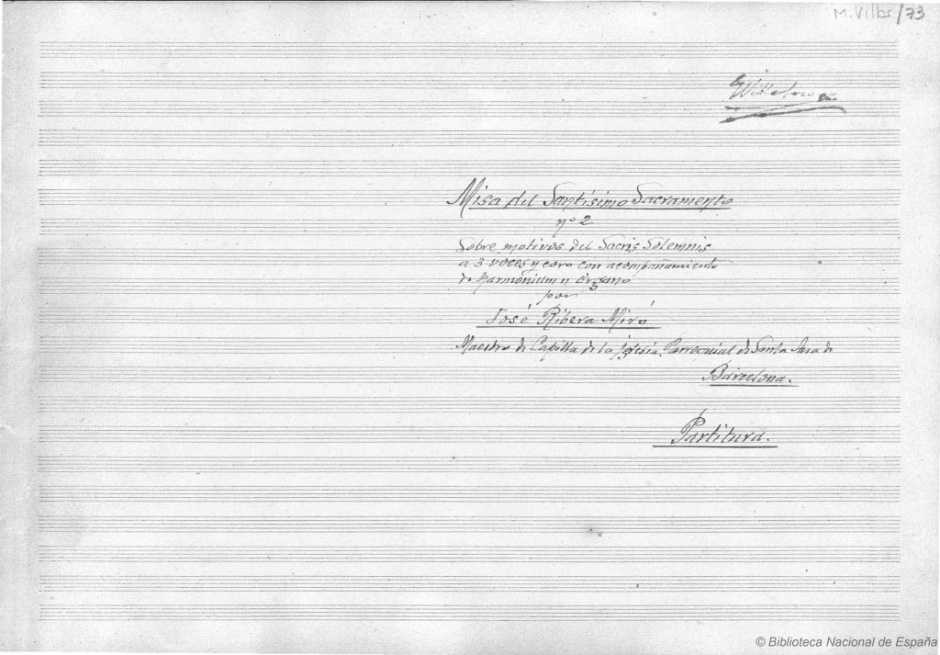 M. Villar/73
Misa del Santísimo Sacramento
nº 2
Sobre motivos del Sacris Solemnis
a 3 voces y coro con acompañamiento
de Harmonium u órgano
por
José Ribera Miró
Maestro de Capilla de la Iglesia Parroquial de Santa Ana de
Barcelona.
Partitura.
© Biblioteca Nacional de España